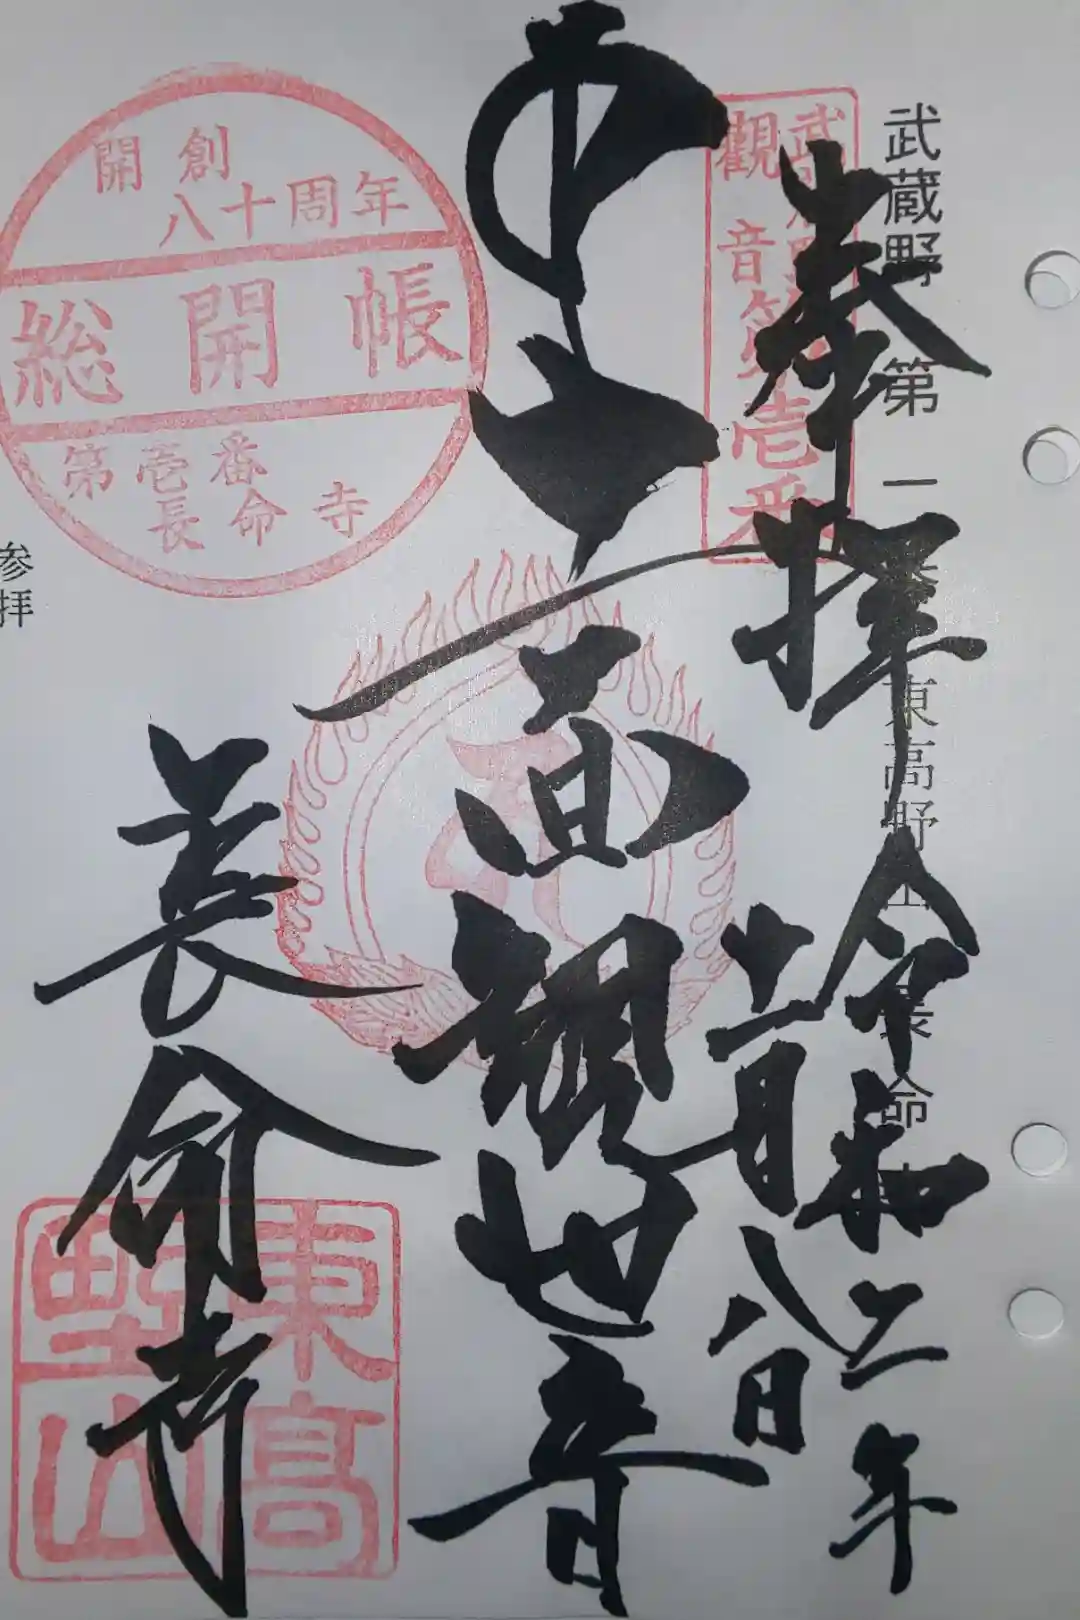 武蔵野 第一番 東高野山 長命寺
奉拝
令和二年
十一月八日
武蔵野
觀音第壱番
十一面観世音
長命寺
開創
八十周年
総開帳
第壱番
長命寺
東高
野山
参拝